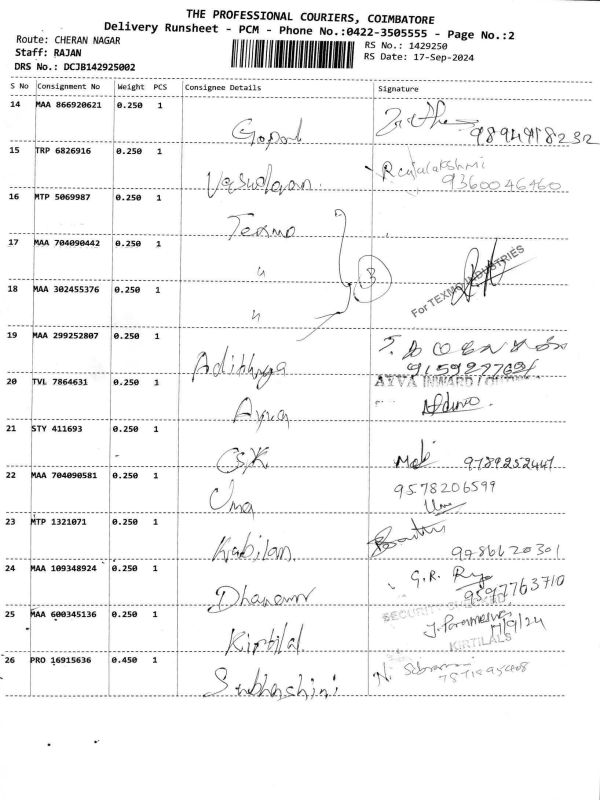 THE PROFESSIONAL COURIERS, COIMBATORE
Delivery Runsheet - PCM - Phone No.:0422-3505555 - Page No.:2
Route: CHERAN NAGAR
Staff: RAJAN
DRS No.: DCJB142925002
RS No.: 1429250
RS Date: 17-Sep-2024
S No Consignment No Weight PCS Consignee Details Signature
14 MAA 866920621 0.250 1 Gopal
15 TRP 6826916 0.250 1 Rajalakshmi 9360046460
16 MTP 5069987 0.250 1 Texmo
17 MAA 704090442 0.250 1 〃 3
18 MAA 302455376 0.250 1 〃 For TEXMO INDUSTRIES
19 MAA 299252807 0.250 1 Adithya
20 TVL 7864631 0.250 1 Ayva AYVA INWARD
21 STY 411693 0.250 1 CSK 9789252447
22 MAA 704090581 0.250 1 Uma 9578206599 Uma
23 MTP 1321071 0.250 1 Kabilan 9786620301
24 MAA 109348924 0.250 1 G.R. 9597763710
25 MAA 600345136 0.250 1 Kirtilal SECURITY 17/9/24 KIRTILALS
26 PRO 16915636 0.450 1 Subhashini